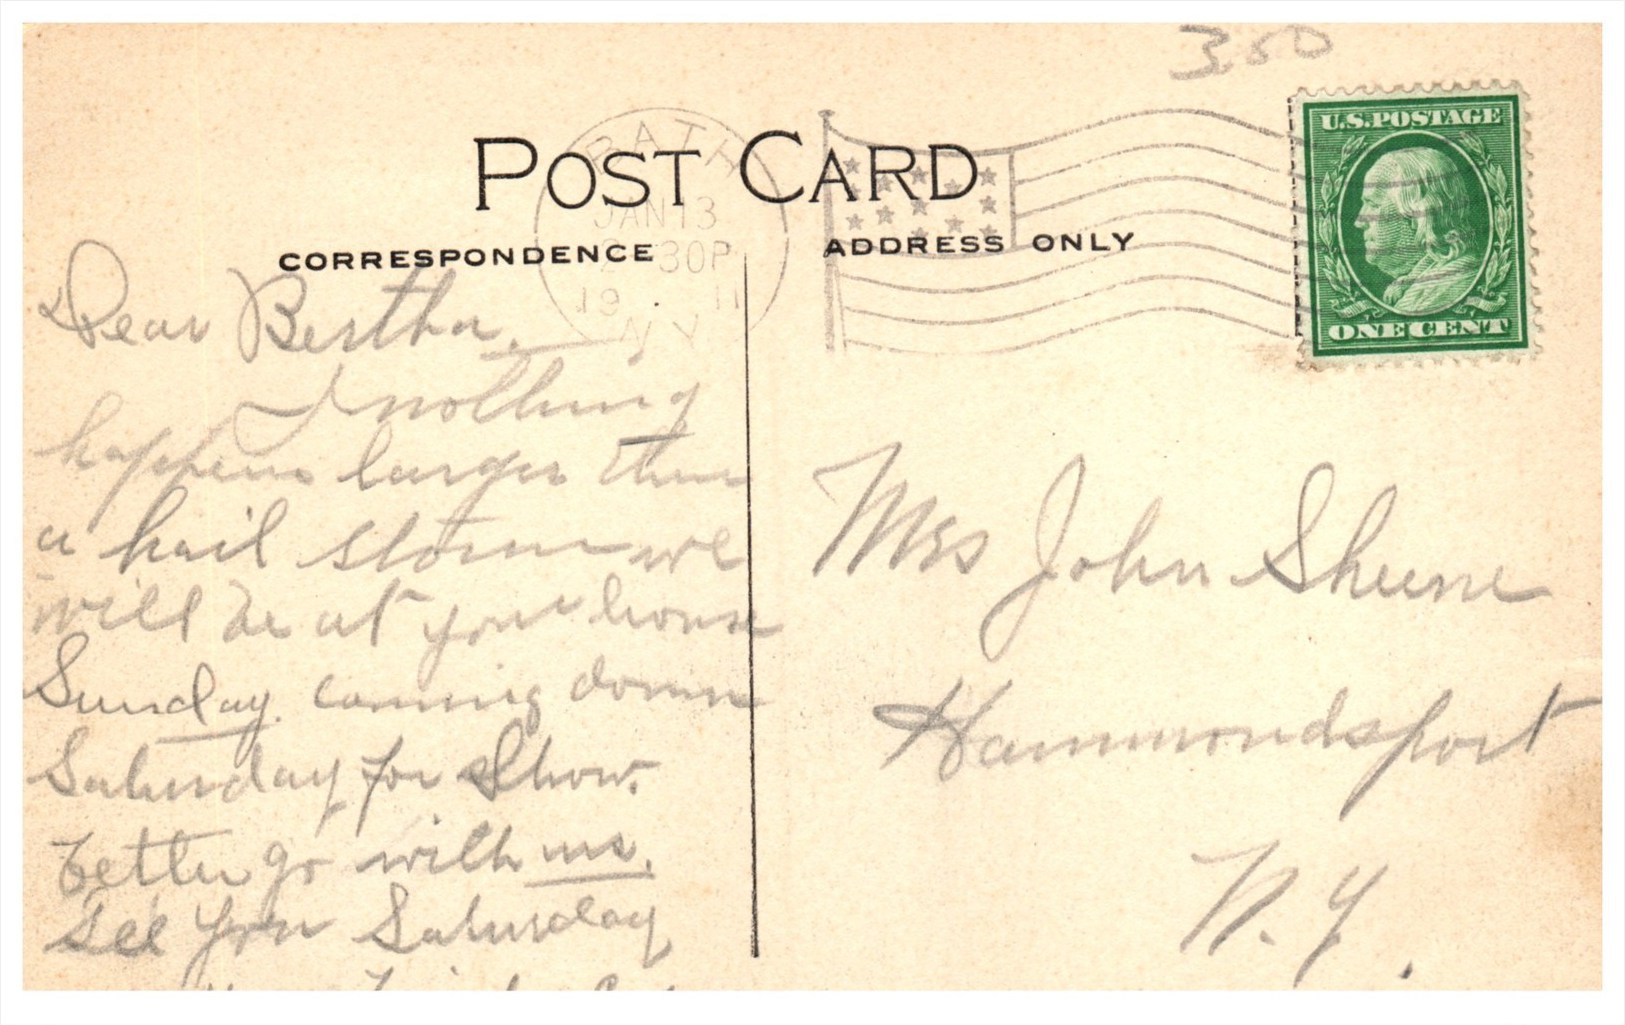 3.50
POST CARD
BATH
JAN 13
30P
19 11
N.Y.
U.S. POSTAGE
ONE CENT
CORRESPONDENCE
ADDRESS ONLY
Dear Bertha,
If nothing
happens larger than
a hail storm we
will be at your house
Sunday. coming down
Saturday for Show.
better go with us.
See you Saturday
Mrs John Sheene
Hammondsport
N. Y.